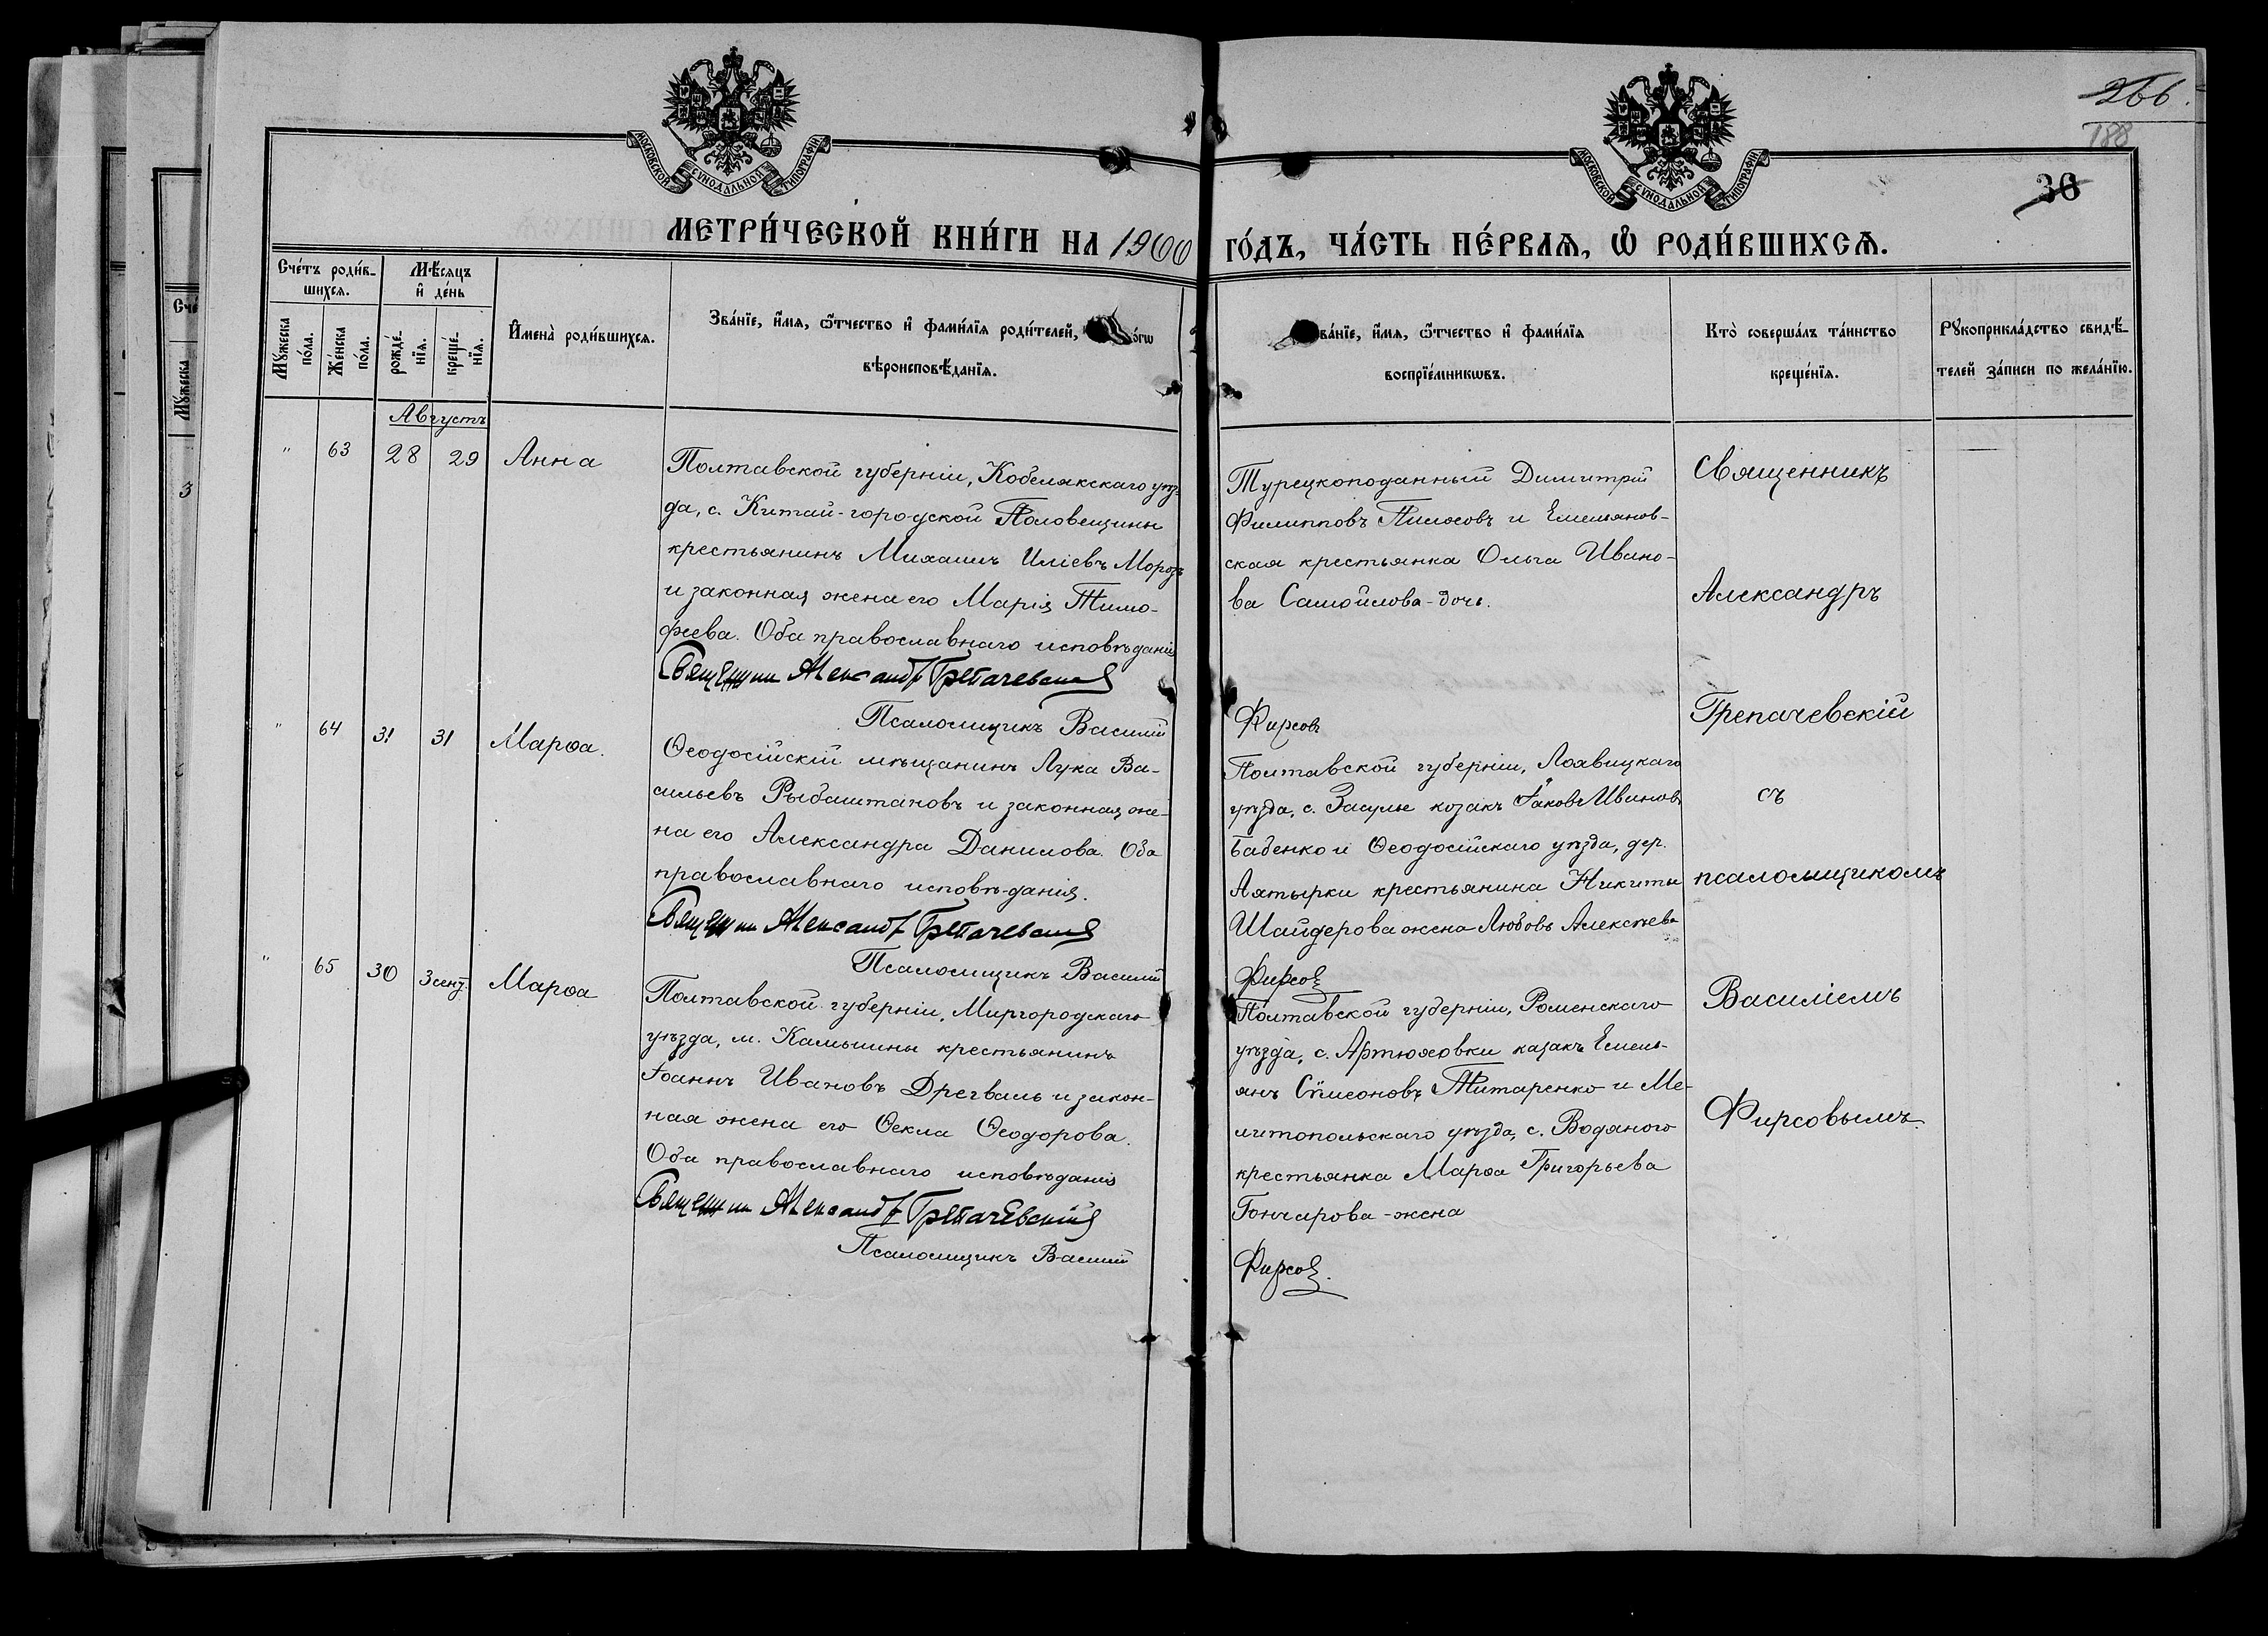 266.
188
30
МОСКОВСКОЙ СѴНОДАЛЬНОЙ ТИПОГРАФІИ.
МОСКОВСКОЙ СѴНОДАЛЬНОЙ ТИПОГРАФІИ.
МЕТРИ́ЧЕСКОЙ КНИ́ГИ НА 1900 ГО́ДЪ, ЧА́СТЬ ПЕ́РВАЯ, Ѡ҆ РОДИ́ВШИХСЯ.
Сче́тъ роди́в-
шихся.
Мѣ́сяцъ
и҆ де́нь
Мꙋ́жеска
по́ла.
Же́нска
по́ла.
рожде́-
нїя.
креще́-
нїя.
И҆мена̀ роди́вшихся.
Зва́нїе, и҆́мя, ѻ҆́тчество и҆ фами́лїя роди́телей,
вѣроисповѣ́данїя.
ва́нїе, и҆́мя, ѻ҆́тчество и҆ фами́лїя
воспрїе́мникѡвъ.
Кто̀ соверша́лъ та́инство
креще́нїя.
Рꙋкоприкла́дство свидѣ́-
телей за́писи по жела́нїю.
Августъ
" 63 28 29 Анна
Полтавской губерніи, Кобелякскаго уѣз-
да, с. Китай-городской Половещины
крестьянинъ Михаилъ Иліевъ Морозъ
и законная жена его Марія Тимо-
феева. Оба православнаго исповѣданія
Священник Александр Грепачевский
Псаломщикъ Василій
Турецкоподанный Димитрій
Филипповъ Пиличовъ и Емельянов-
ская крестьянка Ольга Ивано-
ва Самойлова-дочь.
Фирсовъ
" 64 31 31 Марѳа.
Ѳеодосійскій мѣщанинъ Лука Ва-
сильевъ Рыбаштановъ и законная же-
на его Александра Данилова. Оба
православнаго исповѣ-данія.
Священник Александр Грепачевский
Псаломщикъ Василій
Полтавской губерніи, Лохвицкаго
уѣзда, с. Засулье козакъ Іаковъ Ивановъ
Бабенко и Ѳеодосійскаго уѣзда, дер.
Ахтырки крестьянина Никиты
Шайдерова жена Любовь Алексѣева
Фирсовъ
" 65 30 3 сент. Марѳа
Полтавской губерніи, Миргородскаго
уѣзда, м. Камышны крестьянинъ
Іоаннъ Ивановъ Дрегваль и закон-
ная жена его Ѳекла Ѳеодорова.
Оба православнаго исповѣданія
Священник Александр Грепачевскій
Псаломщикъ Василій
Полтавской губерніи, Роменскаго
уѣзда, с. Артюховки казакъ Емель-
янъ Сѵмеоновъ Титаренко и Ме-
литопольскаго уѣзда, с. Водяного
крестьянка Марѳа Григорьева
Гончарова-жена
Фирсовъ.
Священникъ
Александръ
Грепачевскій
съ
псаломщикомъ
Василіемъ
Фирсовымъ.
Сче́
Мꙋ́жеска
3